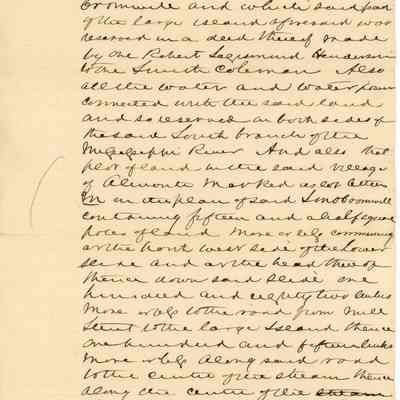 and which said part
of the large island aforesaid was
reserved in a deed thereof made
by one Robert Sagismund Henderson
to the Smith Coleman Also
all the water and water power
connected with the said land
and so reserved on both sides of
the said South branch of the
Mississippi River And also that
plot of land in the said village
of Almonte Marked as lot letter
M in the plan of said
containing fifteen and a half square
poles of land more or less commencing
at the north west side of the lower
slide and at the head thereof
thence down said Slide one
hundred and eighty two links
more or less to the road from Mill
Street to the large Island thence
one hundred and fifteen links
more or less along said road
to the centre of the stream thence
along the centre of the stream